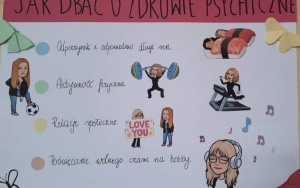 JAK DBAĆ O ZDROWIE PSYCHICZNE
Odpoczynek i odpowiednio długi sen.
Aktywność fizyczna
LOVE YOU
Relacje społeczne
Poświęcanie wolnego czasu na hobby.